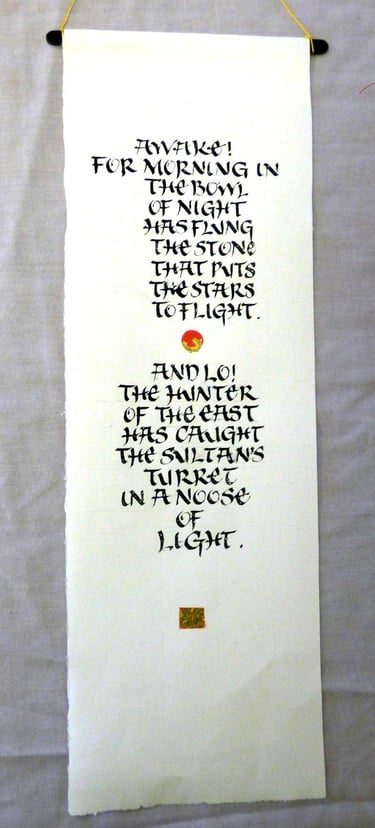 AWAKE!
FOR MORNING IN
THE BOWL
OF NIGHT
HAS FLUNG
THE STONE
THAT PUTS
THE STARS
TO FLIGHT.
AND LO!
THE HUNTER
OF THE EAST
HAS CAUGHT
THE SULTAN'S
TURRET
IN A NOOSE
OF
LIGHT.